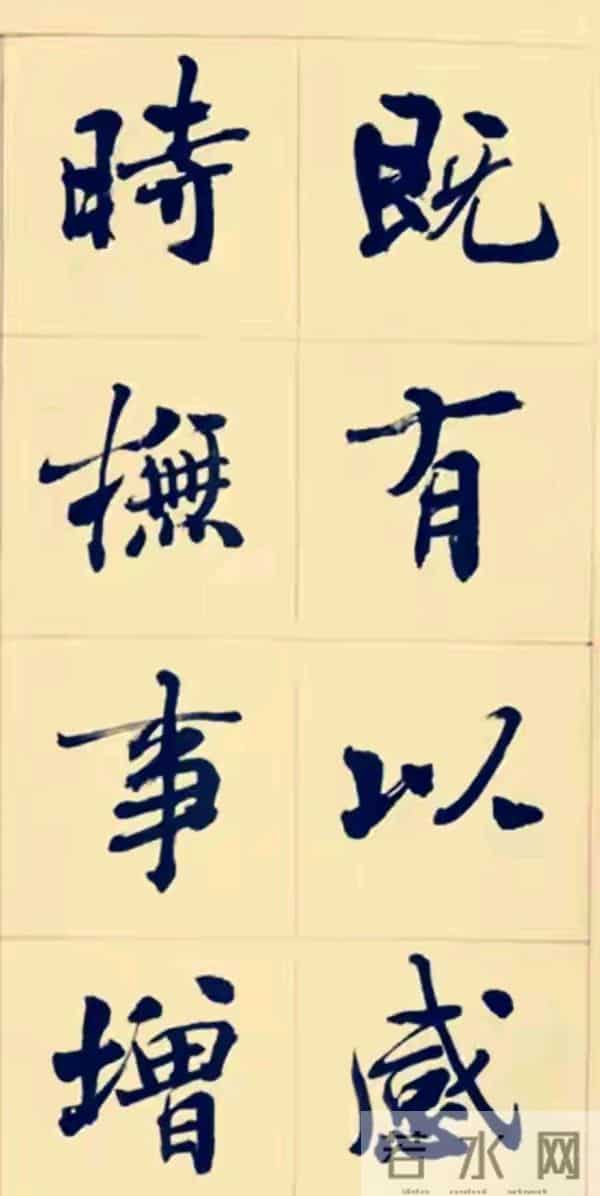 既有以感
時撫事增
若水网